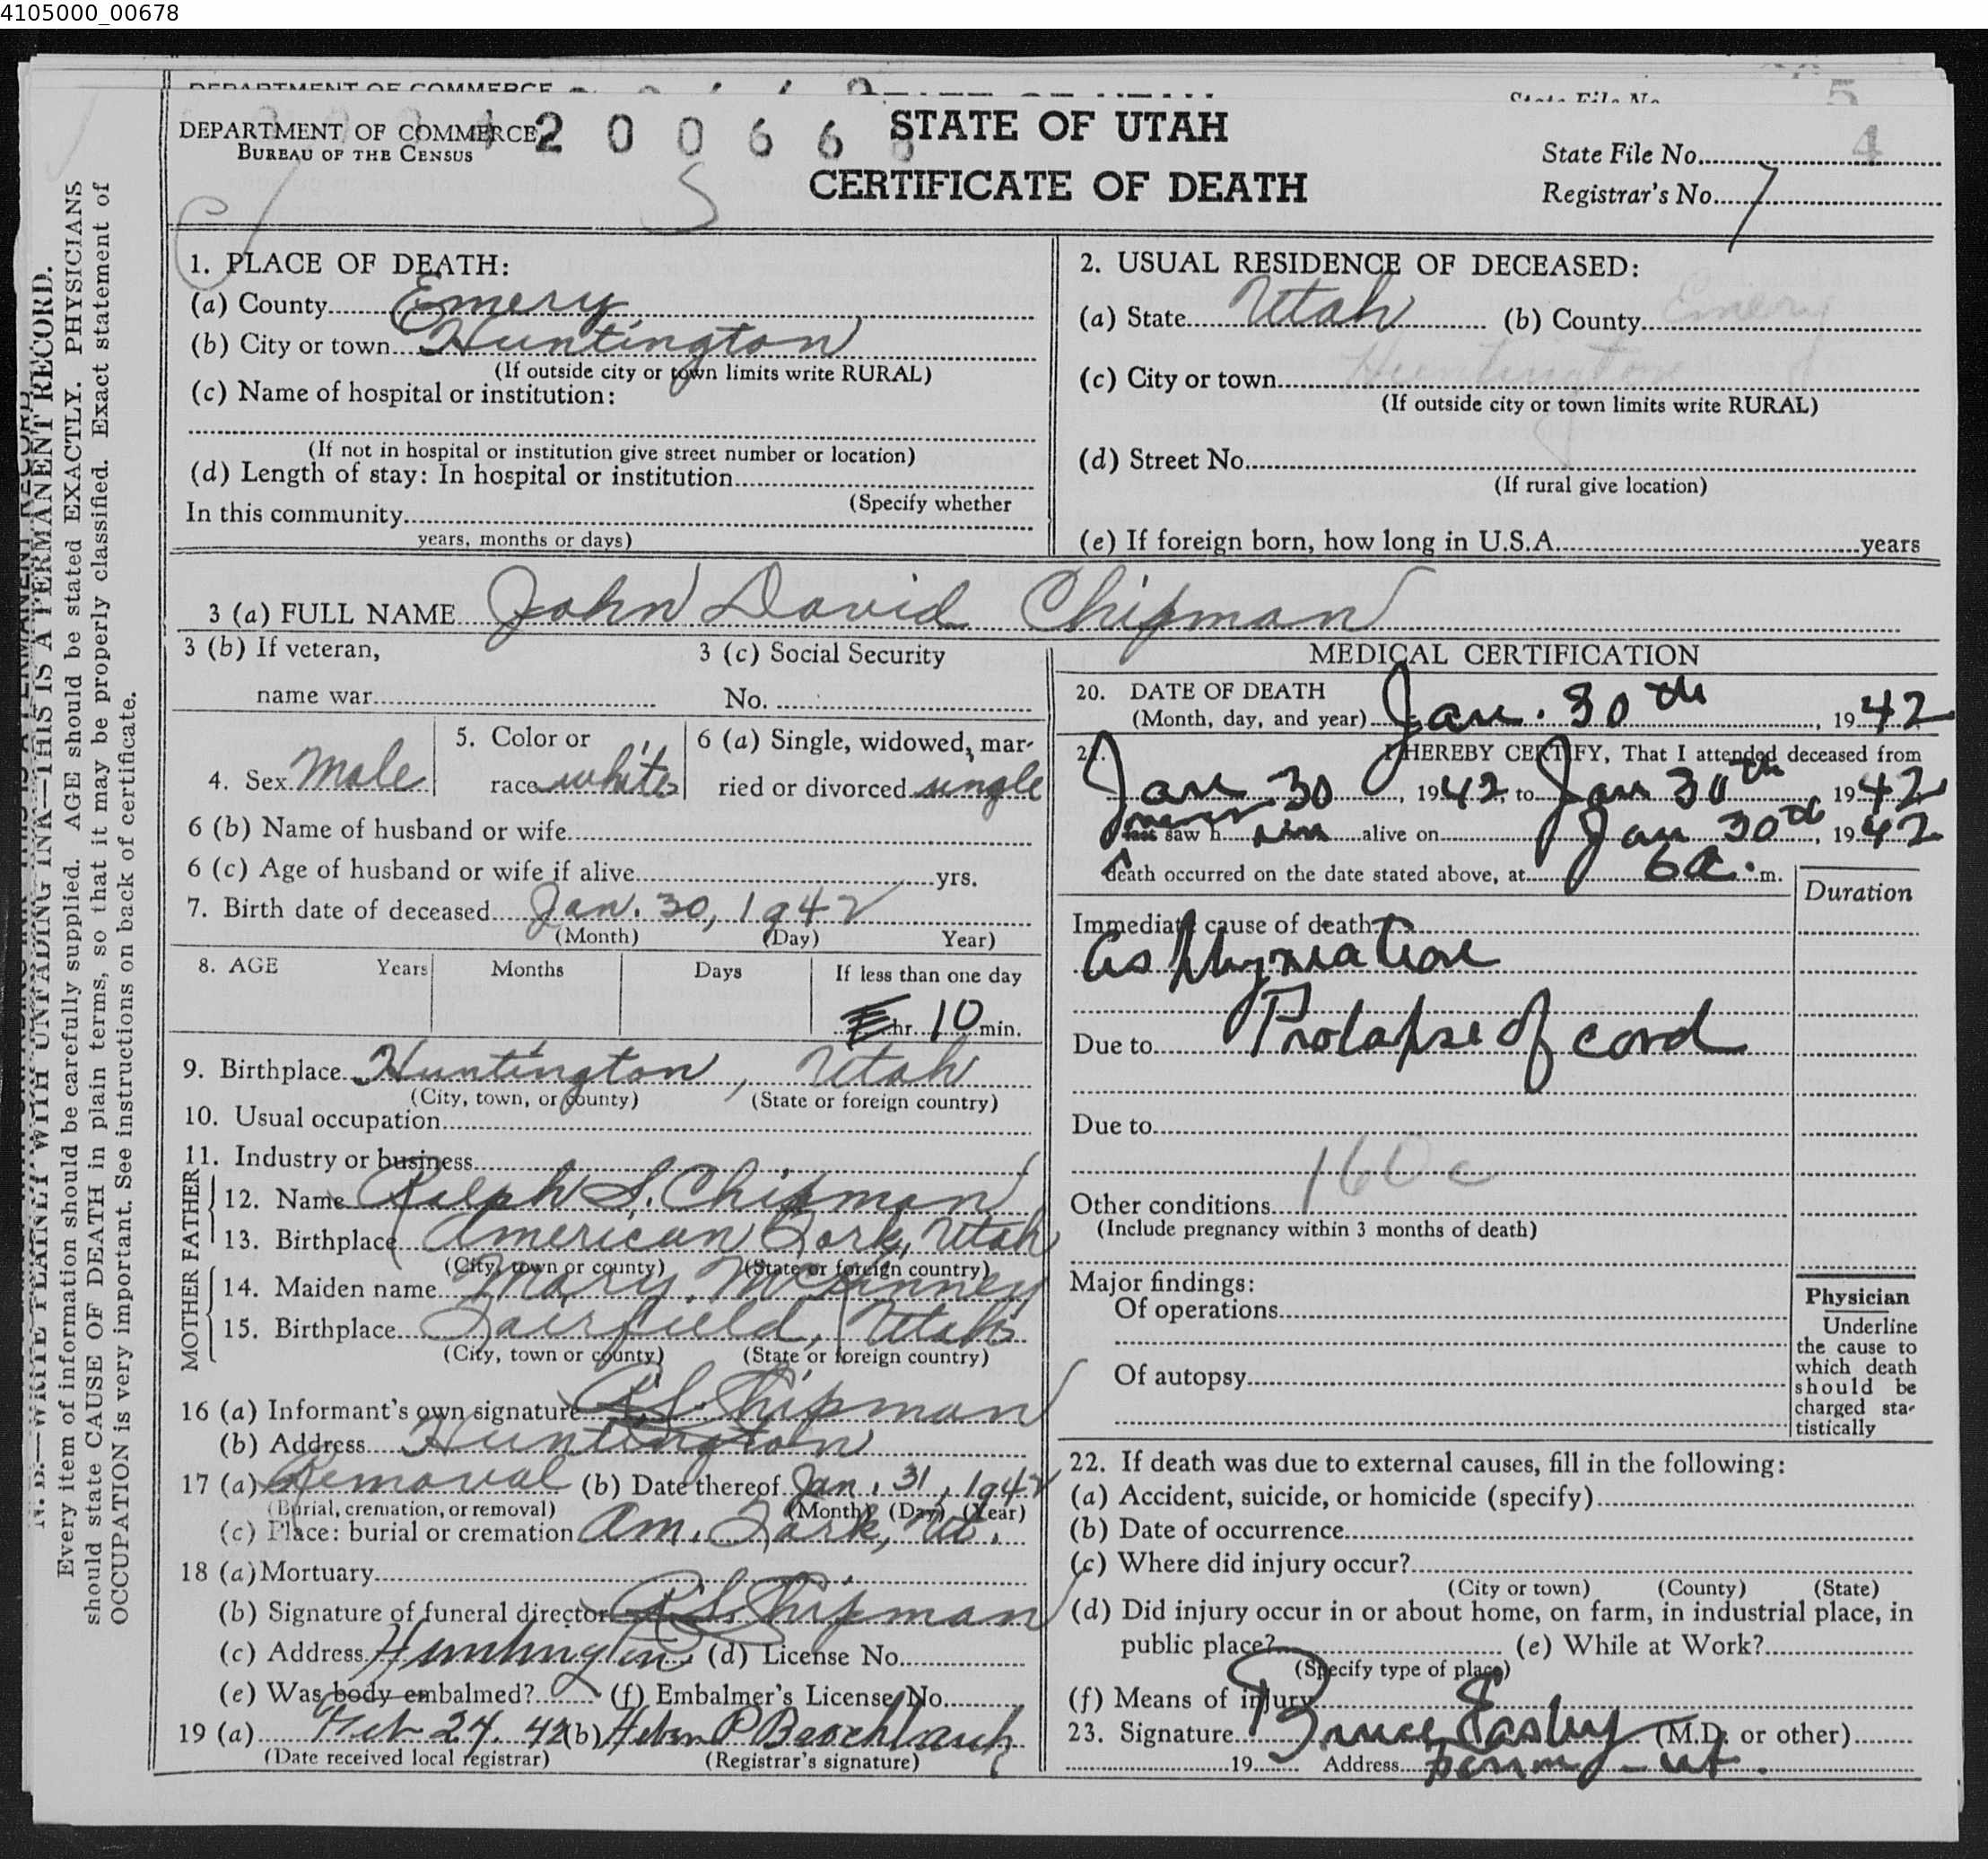 4105000_00678
DEPARTMENT OF COMMERCE
State File No.
5
DEPARTMENT OF COMMERCE
BUREAU OF THE CENSUS
2 0 0 6 6
STATE OF UTAH
CERTIFICATE OF DEATH
State File No. 4
Registrar's No. 7
N. B.—WRITE PLAINLY WITH UNFADING INK—THIS IS A PERMANENT RECORD.
Every item of information should be carefully supplied. AGE should be stated EXACTLY. PHYSICIANS
should state CAUSE OF DEATH in plain terms, so that it may be properly classified. Exact statement of
OCCUPATION is very important. See instructions on back of certificate.
1. PLACE OF DEATH:
(a) County Emery
(b) City or town Huntington
(If outside city or town limits write RURAL)
(c) Name of hospital or institution:
(If not in hospital or institution give street number or location)
(d) Length of stay: In hospital or institution
(Specify whether
In this community
years, months or days)
2. USUAL RESIDENCE OF DECEASED:
(a) State Utah (b) County Emery
(c) City or town Huntington
(If outside city or town limits write RURAL)
(d) Street No.
(If rural give location)
(e) If foreign born, how long in U.S.A. years
3 (a) FULL NAME John David Chipman
3 (b) If veteran,
name war
3 (c) Social Security
No.
4. Sex Male
5. Color or
race white
6 (a) Single, widowed, mar-
ried or divorced single
6 (b) Name of husband or wife
6 (c) Age of husband or wife if alive yrs.
7. Birth date of deceased Jan. 30, 1942
(Month) (Day) Year)
8. AGE Years Months Days If less than one day
hr. 10 min.
9. Birthplace Huntington, Utah
(City, town, or county) (State or foreign country)
10. Usual occupation
11. Industry or business
FATHER
12. Name Ralph S. Chipman
13. Birthplace American Fork, Utah
(City, town or county) (State or foreign country)
MOTHER
14. Maiden name Mary McKinney
15. Birthplace Fairfield, Utah
(City, town or county) (State or foreign country)
16 (a) Informant's own signature R.S. Chipman
(b) Address Huntington
17 (a) Removal (b) Date thereof Jan. 31, 1942
(Burial, cremation, or removal) (Month) (Day) (Year)
(c) Place: burial or cremation Am. Fork, Ut.
18 (a) Mortuary
(b) Signature of funeral director R.S. Chipman
(c) Address Huntington (d) License No.
(e) Was body embalmed? (f) Embalmer's License No.
19 (a) Feb 24. 42 (b) Heber P
(Date received local registrar) (Registrar's signature)
MEDICAL CERTIFICATION
20. DATE OF DEATH
(Month, day, and year) Jan. 30th, 1942
21. I HEREBY CERTIFY, That I attended deceased from
Jan 30, 1942, to Jan 30th 1942
never saw him alive on Jan 30th, 1942
Death occurred on the date stated above, at 6 a. m.
Duration
Immediate cause of death
Asphyxiation
Due to Prolapse of cord
Due to
160c
Other conditions
(Include pregnancy within 3 months of death)
Major findings:
Of operations
Of autopsy
Physician
Underline
the cause to
which death
should be
charged sta-
tistically
22. If death was due to external causes, fill in the following:
(a) Accident, suicide, or homicide (specify)
(b) Date of occurrence
(c) Where did injury occur?
(City or town) (County) (State)
(d) Did injury occur in or about home, on farm, in industrial place, in
public place? (e) While at Work?
(Specify type of place)
(f) Means of injury
23. Signature Bruce Easley (M.D. or other)
19 Address Ferron - ut.